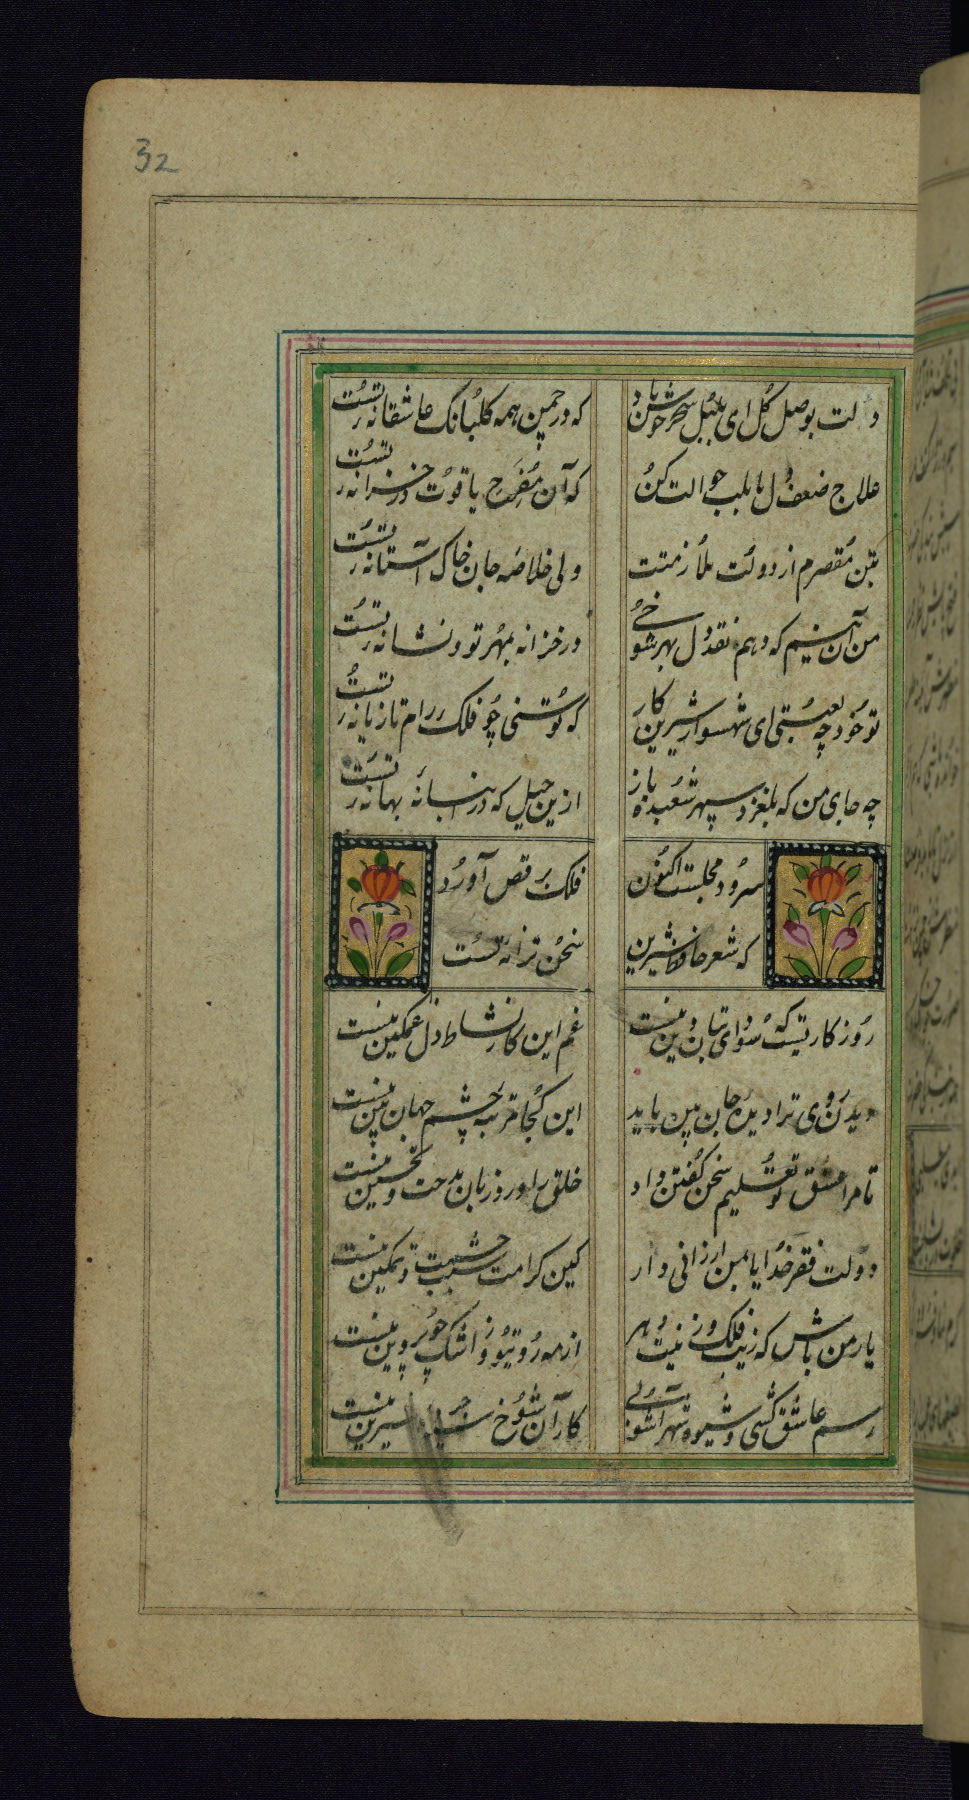 32
دلت بوصل گل ای بلبل سحر خوش باد
که در چمن همه گلبانک عاشقانه تست
علاج ضعف دل ما بلب حوالت کن
که آن مفرح یاقوت در خزانه تست
بتن مقصرم از دولت ملازمتت
ولی خلاصه جان خاک آستانه تست
من آن نیم که دهم نقد دل بهر شوخی
در خزانه بمهر تو و نشانه تست
تو خود چه لعبتی ای شهسوار شیرین کار
که توسنی چو فلک رام تازیانه تست
چه جای من که بلغزد سپهر شعبده باز
ازین حیل که در انبانه بهانه تست
سرود مجلست اکنون
فلک برقص آورد
که شعر حافظ شیرین
سخن ترانه تست
روزکاریست که سودای بتان دین منست
غم این کار نشاط دل غمکین منست
دیدن روی ترا دیده جان بین باید
این کجا مرتبه چشم جهان بین منست
تا مرا عشق تو تعلیم سخن کفتن داد
خلق را ورد زبان مدحت و تحسین منست
دولت فقر خدایا بمن ارزانی دار
کین کرامت سبب حشمت و تمکین منست
یار من باش که زیب فلک و زینت دهر
از مه روی تو و اشک چو پروین منست
رسم عاشق کشی و شیوه شهر آشوبی
کار آن شوخ